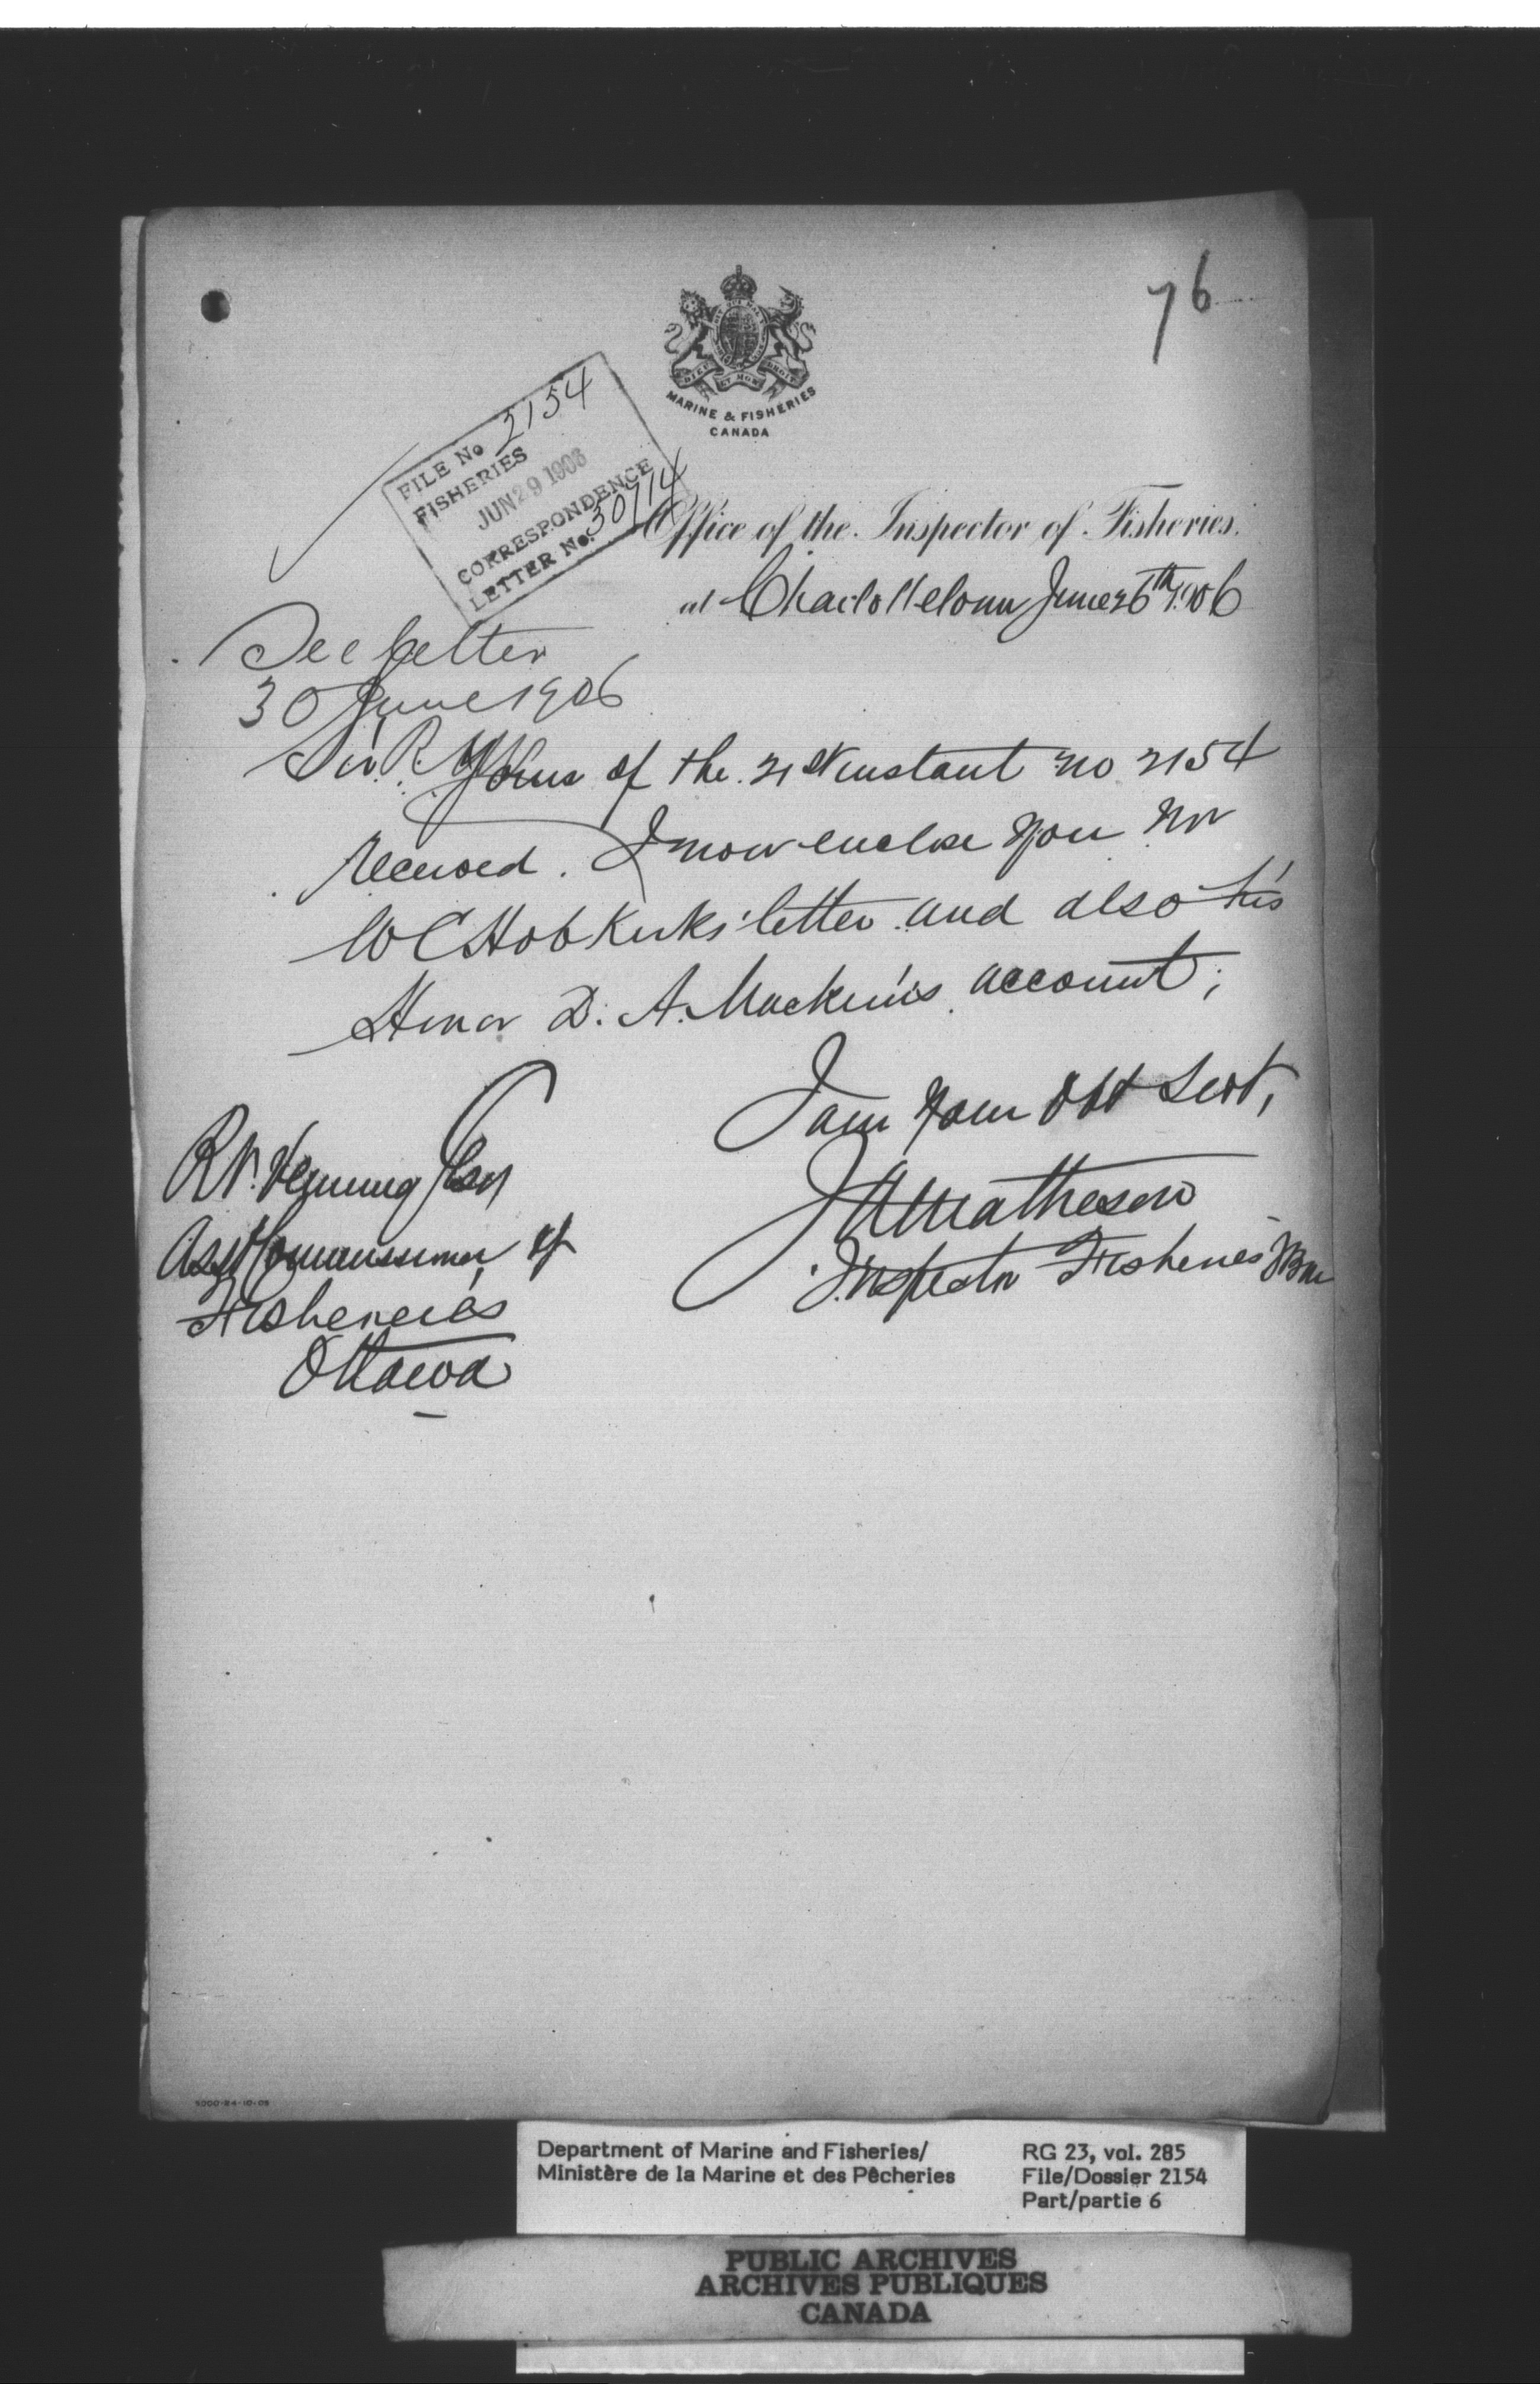 76
DIEU ET MON DROIT
MARINE & FISHERIES
CANADA
FILE No 2154
FISHERIES
JUN 29 1906
CORRESPONDENCE
LETTER No. 30714
Office of the Inspector of Fisheries.
at Charlottetown June 26th 1906
See letter
30 June 1906
Sir. Yours of the 21st instant no 2154
received. I now enclose you Mr
W C Hobkirks' letter and also his
Honor D. A. Mackinnis account;
I am Your Obt Servt,
J A Matheson
Inspector Fisheries
R N. Venning Esq
Asst Commissioner of
Fisheries
Ottawa
5000-24-10-05
Department of Marine and Fisheries/
Ministère de la Marine et des Pêcheries
RG 23, vol. 285
File/Dossier 2154
Part/partie 6
PUBLIC ARCHIVES
ARCHIVES PUBLIQUES
CANADA